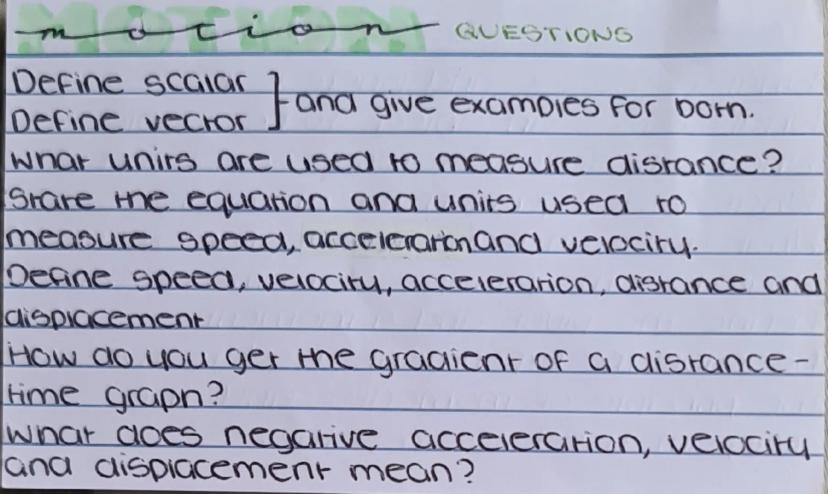 MOTION
motion QUESTIONS
Define scalar
Define vector } and give examples for both.
What units are used to measure distance?
State the equation and units used to
measure speed, acceleration and velocity.
Define speed, velocity, acceleration, distance and
displacement
How do you get the gradient of a distance-
time graph?
What does negative acceleration, velocity
and displacement mean?